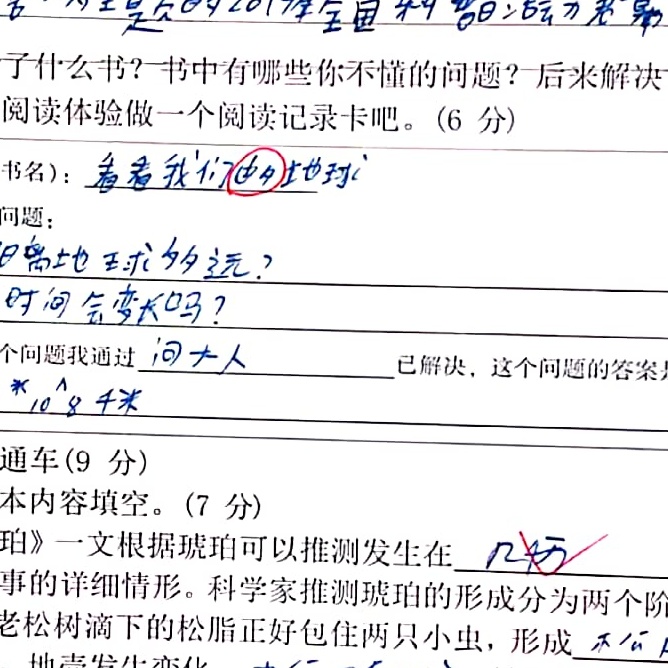 了什么书？书中有哪些你不懂的问题？后来解决
阅读体验做一个阅读记录卡吧。(6 分)
书名)：看看我们的地球
问题：
日离地球多远？
时间会变长吗？
个问题我通过 问大人 已解决，这个问题的答案是
*10^8千米
通车(9 分)
本内容填空。(7 分)
珀》一文根据琥珀可以推测发生在
事的详细情形。科学家推测琥珀的形成分为两个阶
老松树滴下的松脂正好包住两只小虫，形成
地壳发生变化